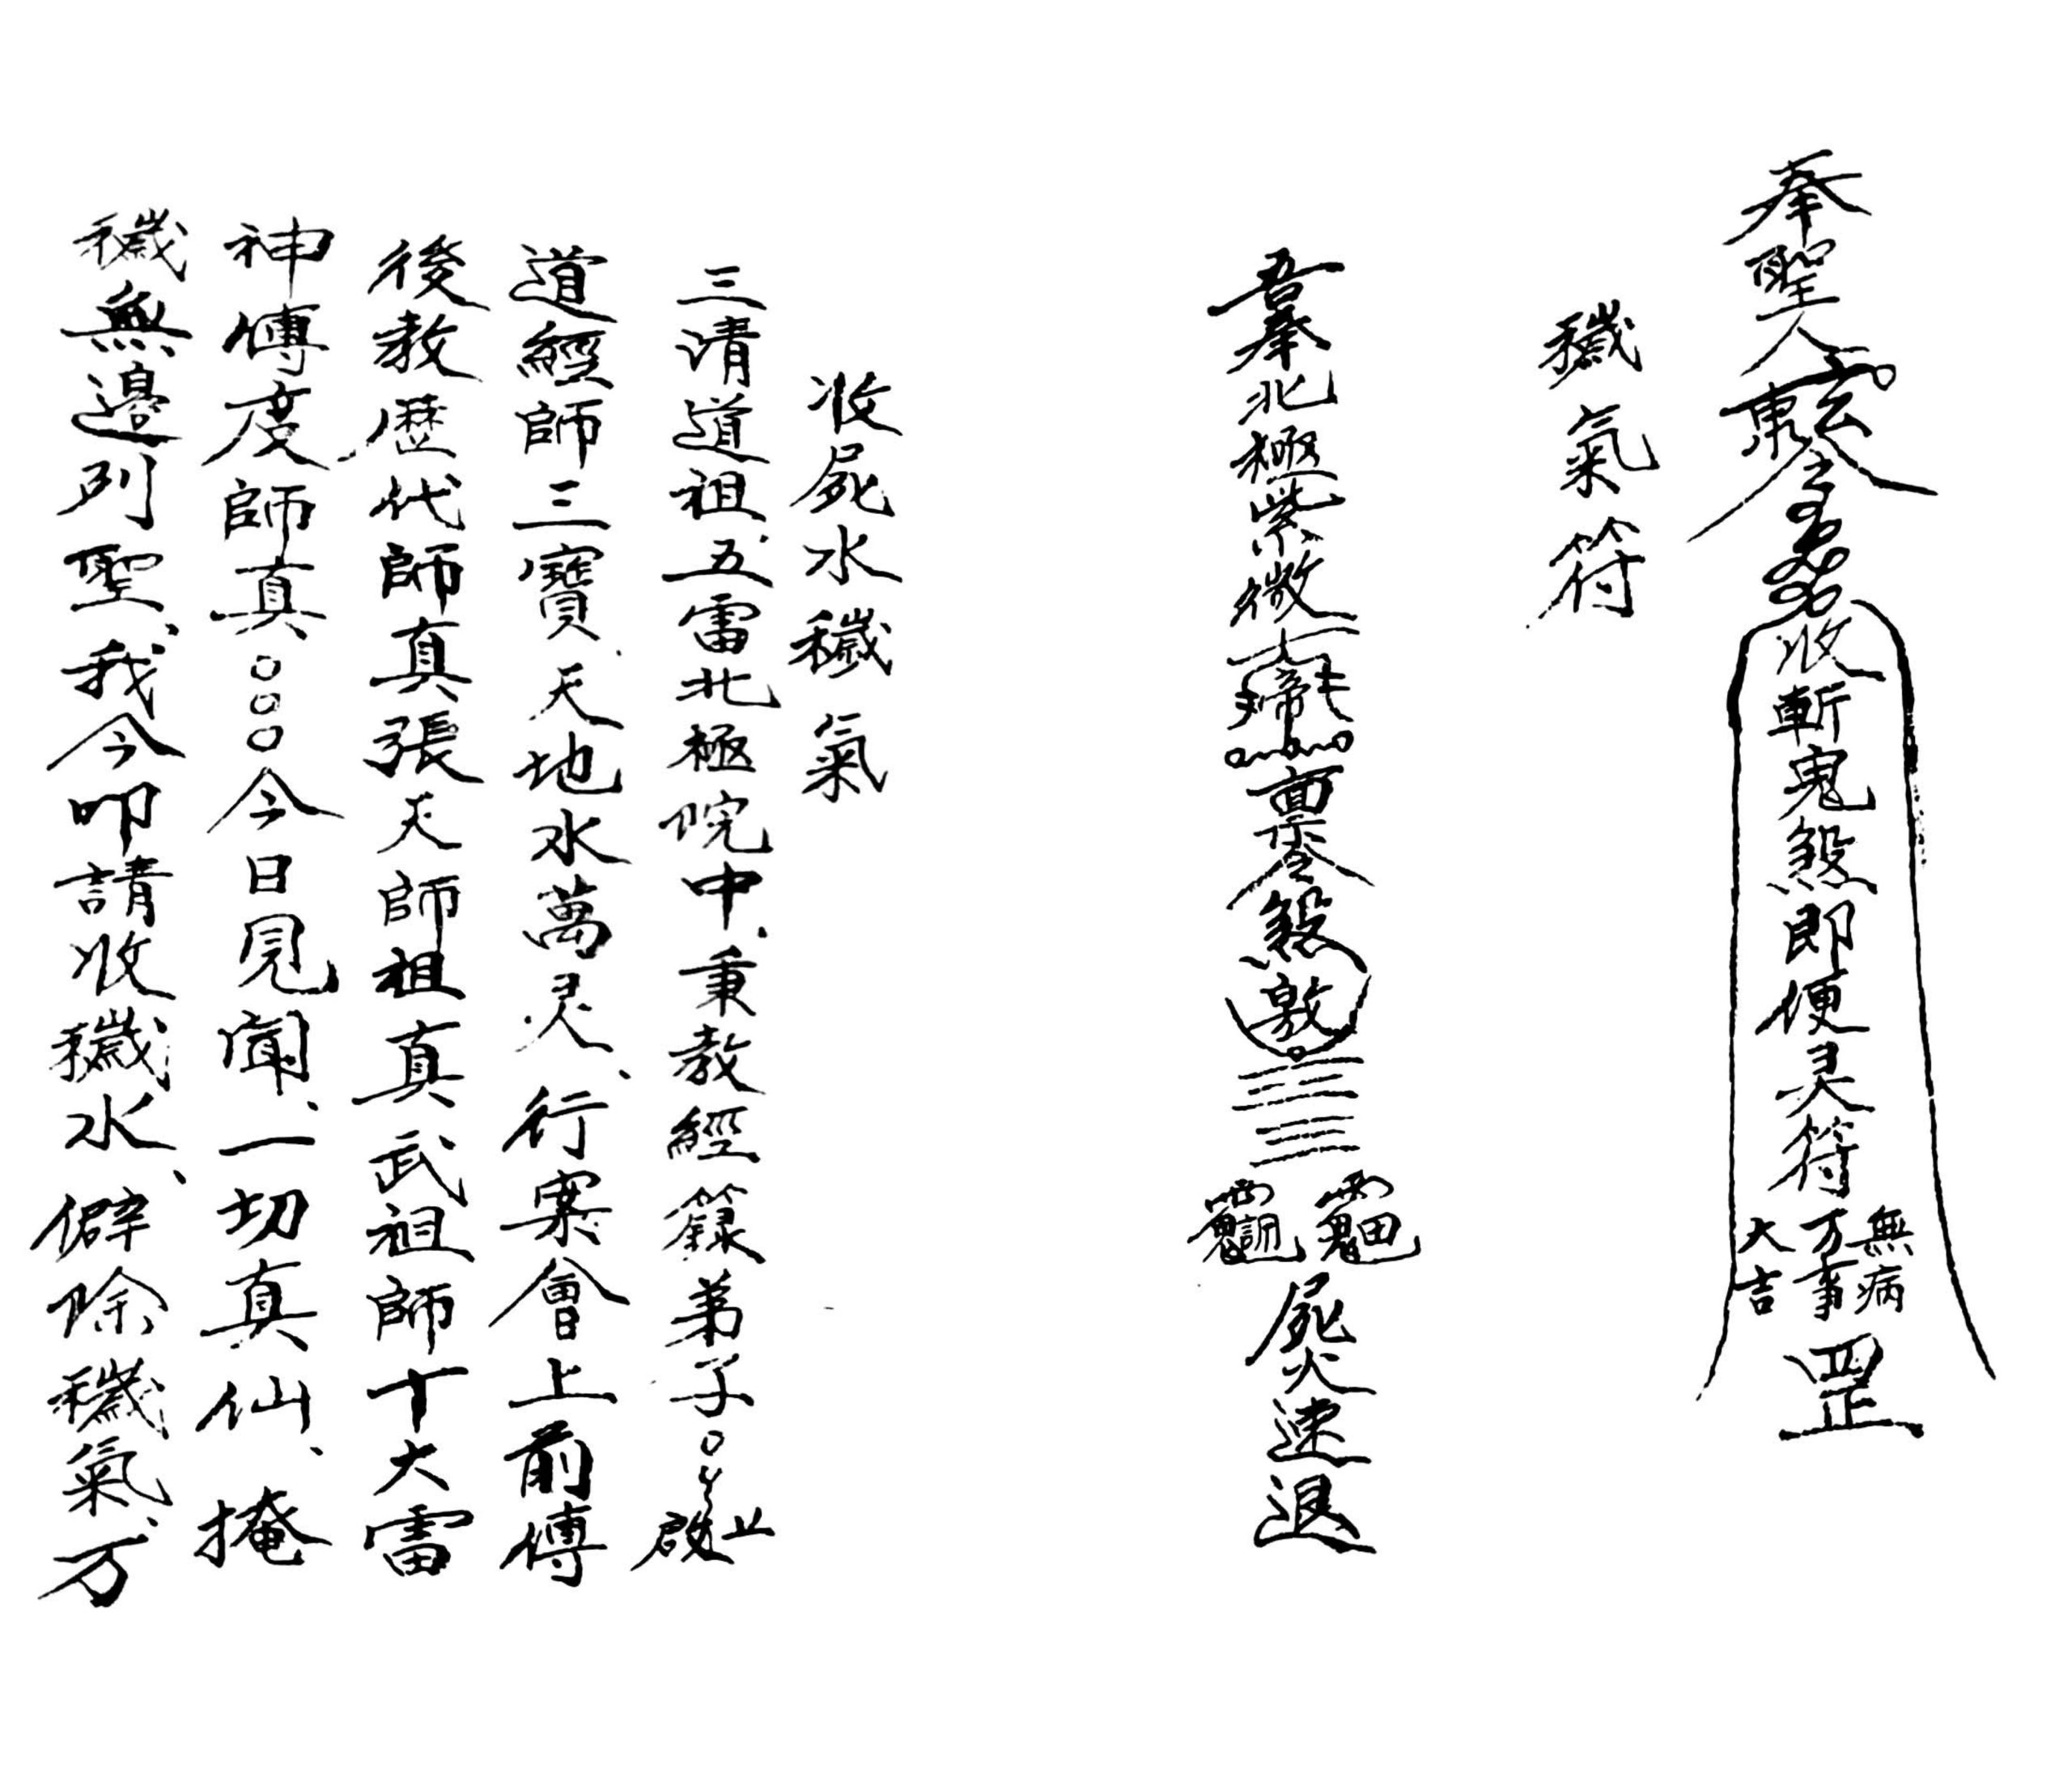 奉聖人敕令收斬鬼煞即便灵符無病万事大吉罡
穢氣符
奉北極紫微大帝敕令煞敕屍火速退
收屍水穢氣
三清道祖、五雷北極院中、秉教經籙弟子○○上啟
道經師三寶、天地水萬灵、行案會上前傳
後教歷代師真張天師祖真武祖師十大雷
神傳度師真○○○今日見聞、一切真仙、掩
穢無邊列聖、我今叩請收穢水、僻除穢氣、万